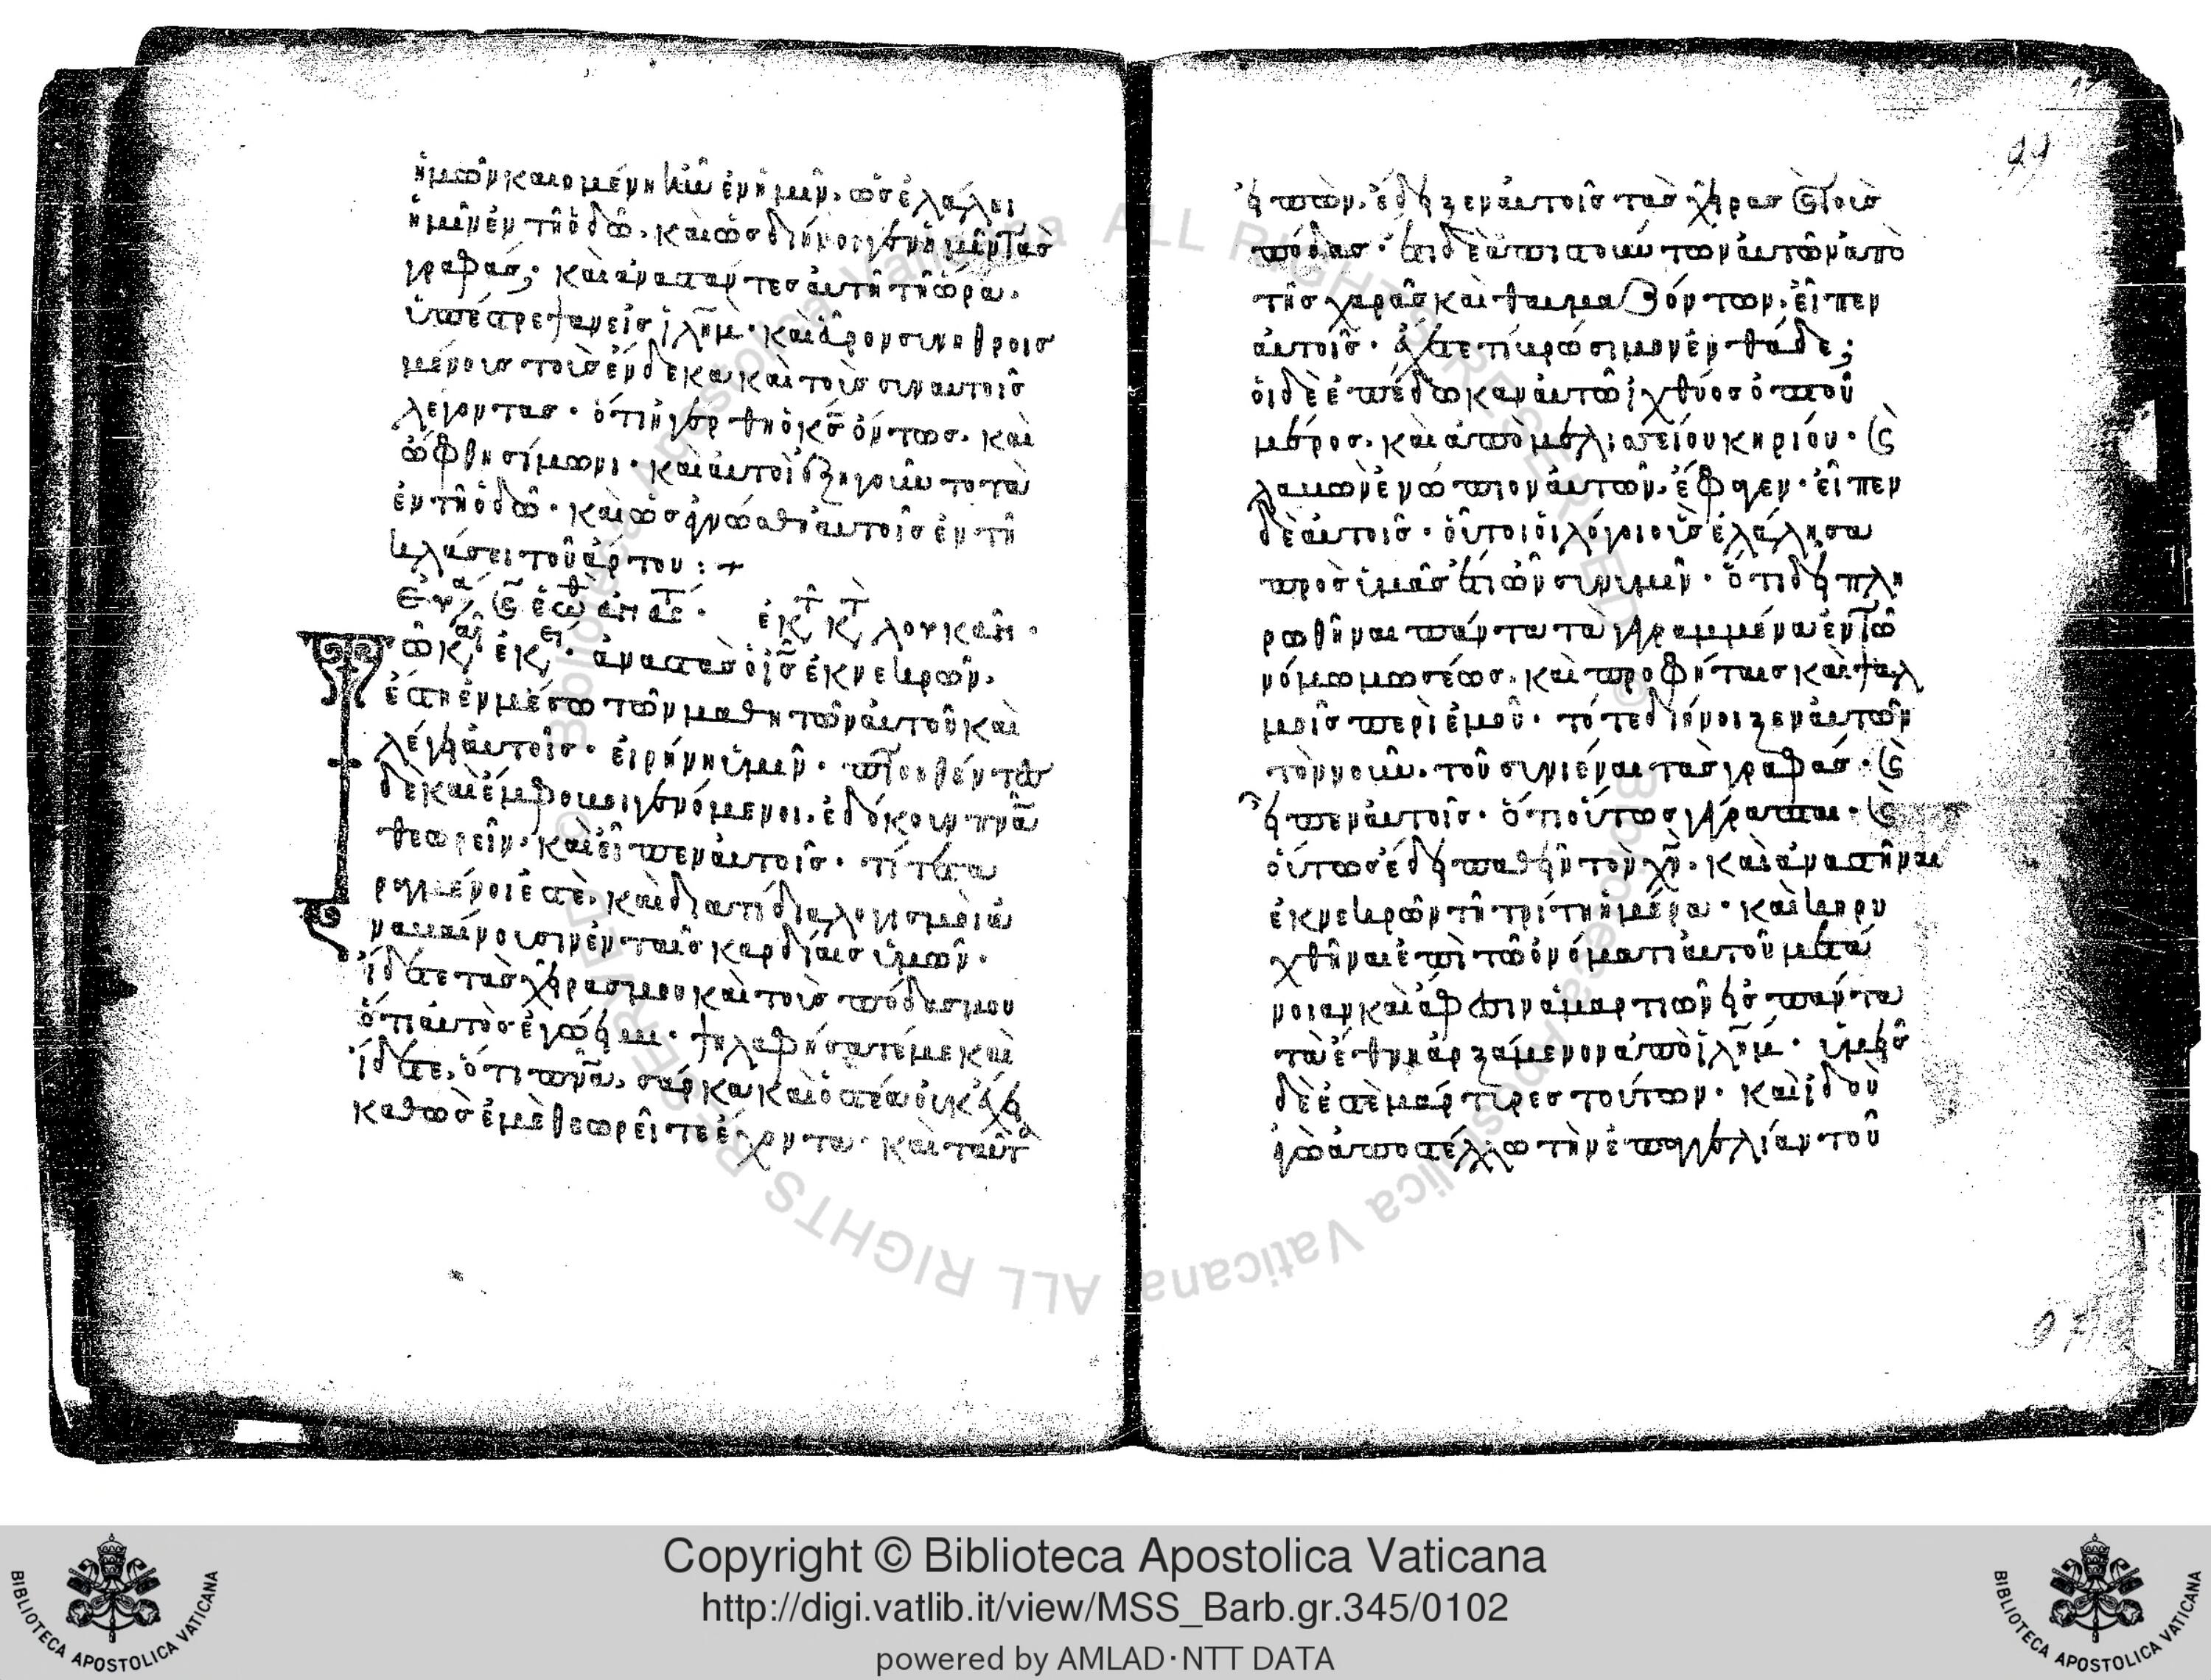 ἡμῶν καιομένη ἦν ἐν ἡμῖν. ὡς ἐλάλει
ἡμῖν ἐν τῆ ὁδῶ. καὶ ὡς διήνοιγεν ἡμῖν τὰς
γραφάς; καὶ ἀναστάντες αὐτῆ τῆ ὥρα.
ὑπέστρεψαν εἰς ἱλῆμ. καὶ εὗρον συνηθροισ
μένους τοὺς ἕνδεκα καὶ τοὺς σὺν αὐτοῖς
λέγοντας. ὅτι ἠγέρθη ὁ κς ὄντως. καὶ
ὤφθη σίμωνι. καὶ αὐτοὶ ἐξηγοῦντο τὰ
ἐν τῆ ὁδῶ. καὶ ὡς ἐγνώσθη αὐτοῖς ἐν τῆ
κλάσει τοῦ ἄρτου: +
ἐκ τ κτ λουκᾶν.
ῶ κ ἐκ. ἀναστὰς ὁ ις ἐκ νεκρῶν.
ἔστη ἐν μέσω τῶν μαθητῶν αὐτοῦ καὶ
λέγει αὐτοῖς. εἰρήνη ὑμῖν. πτοηθέντες
δὲ καὶ ἔμφοβοι γενόμενοι. ἐδόκουν πνα
θεωρεῖν. καὶ εἶπεν αὐτοῖς. τί τετα
ραγμένοι ἐστὲ. καὶ διατί διαλογισμοὶ ἀ
ναβαίνουσιν ἐν ταῖς καρδίαις ὑμῶν.
ἴδετε τὰς χεῖρας μου καὶ τοὺς πόδας μου
ὅτι αὐτὸς ἐγώ εἰμι. ψηλαφήσατέ με καὶ
ἴδετε, ὅτι πνα, σάρκα καὶ ὀστέα οὐκ ἔχει
καθὼς ἐμὲ θεωρεῖτε ἔχοντα. καὶ ταῦτα
99
εἰπὼν. ἔδειξεν αὐτοῖς τὰς χεῖρας καὶ τοὺς
πόδας. ἔτι δὲ ἀπιστούντων αὐτῶν ἀπὸ
τῆς χαρᾶς καὶ θαυμαζόντων. εἶπεν
αὐτοῖς. ἔχετε τί βρώσιμον ἐνθάδε;
οἱ δὲ ἐπέδωκαν αὐτῶ ἰχθύος ὀπτοῦ
μέρος. καὶ ἀπὸ μελισσείου κηρίου. καὶ
λαβὼν ἐνώπιον αὐτῶν. ἔφαγεν. εἶπεν
δὲ αὐτοῖς. οὗτοι οἱ λόγοι οὓς ἐλάλησα
πρὸς ὑμᾶς ἔτι ὢν σὺν ὑμῖν. ὅτι δεῖ πλη
ρωθῆναι πάντα τὰ γεγραμμένα ἐν τῶ
νόμω μωσέως. καὶ προφήταις καὶ ψαλ
μοῖς περὶ ἐμοῦ. τότε διήνοιξεν αὐτῶν
τὸν νοῦν. τοῦ συνιέναι τὰς γραφάς. καὶ
εἶπεν αὐτοῖς. ὅτι οὕτως γέγραπται. καὶ
οὕτως ἔδει παθεῖν τὸν χν. καὶ ἀναστῆναι
ἐκ νεκρῶν τῆ τρίτη ἡμέρα. καὶ κηρυ
χθῆναι ἐπὶ τῶ ὀνόματι αὐτοῦ μετά
νοιαν καὶ ἄφεσιν ἁμαρτιῶν εἰς πάντα
τὰ ἔθνη ἀρξάμενον ἀπὸ ἱλήμ. ὑμεῖς
δὲ ἐστὲ μάρτυρες τούτων. καὶ ἰδοὺ
ἐγὼ ἀποστέλλω τὴν ἐπαγγελίαν τοῦ
Copyright © Biblioteca Apostolica Vaticana
http://digi.vatlib.it/view/MSS_Barb.gr.345/0102
powered by AMLAD·NTT DATA
BIBLIOTECA APOSTOLICA VATICANA
BIBLIOTECA APOSTOLICA VATICANA